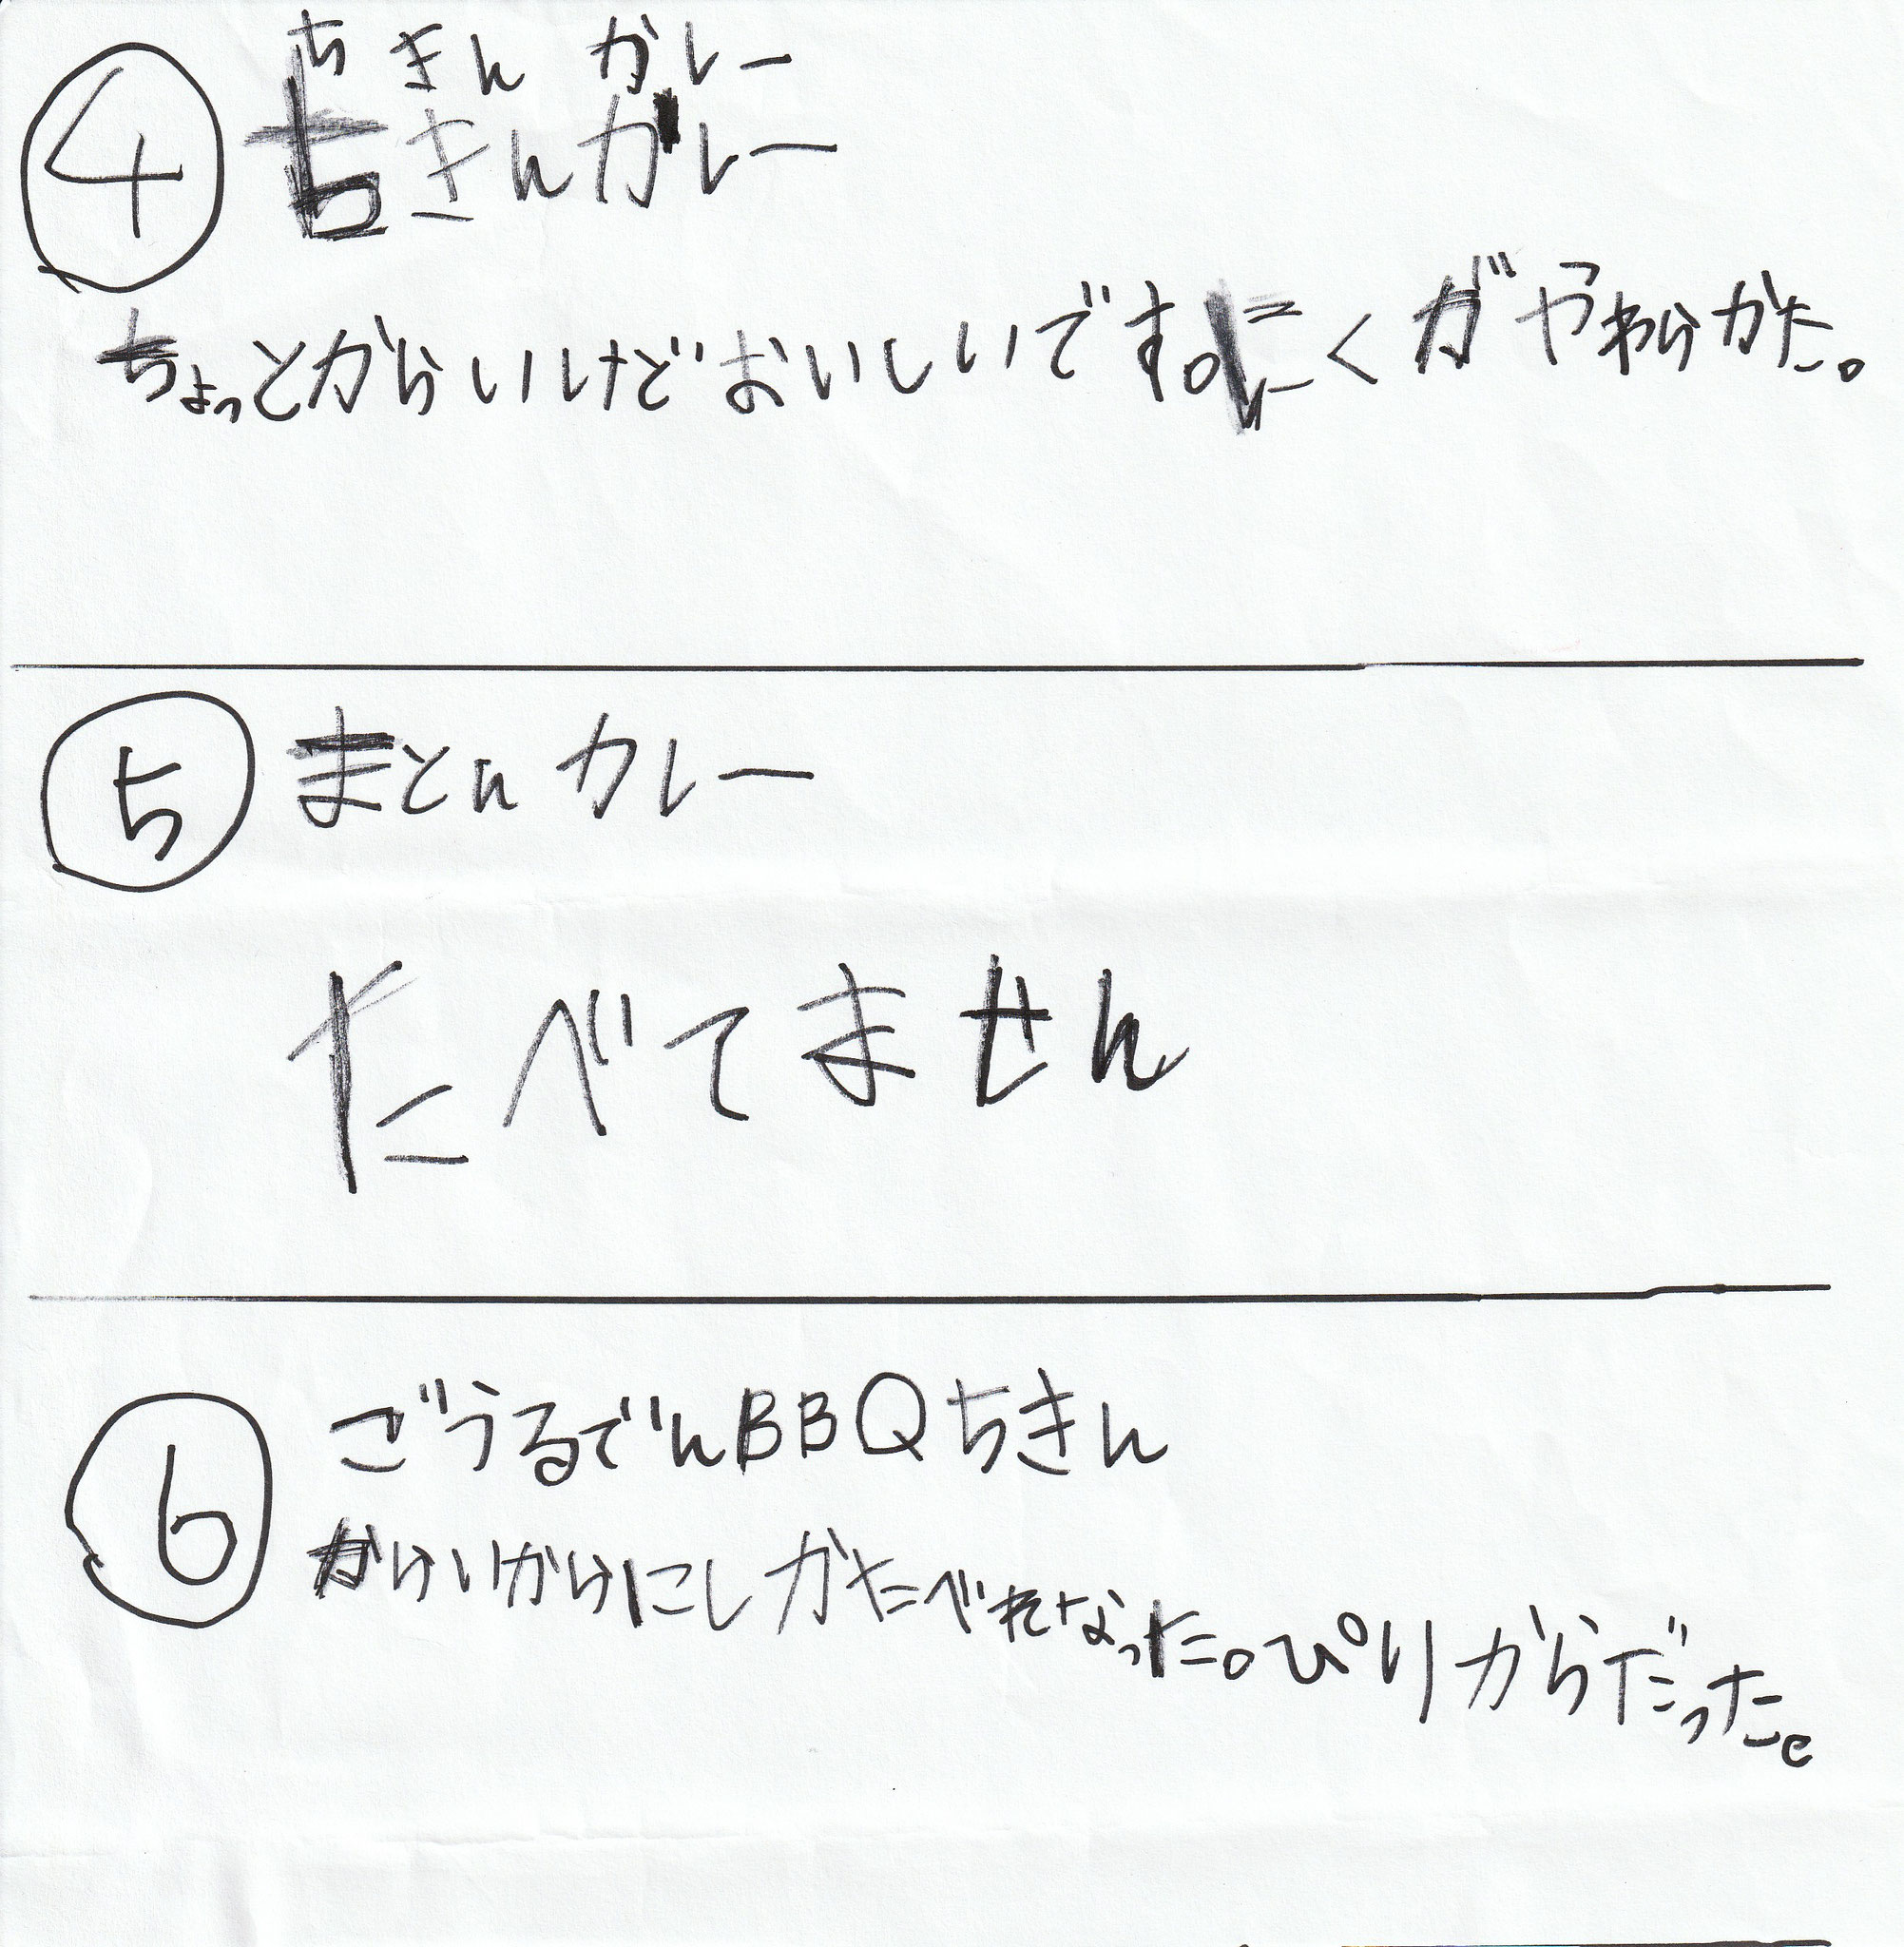 ④ ちきんカレー
ちきんカレー
ちょっとからいけどおいしいです。にくがやわらかた。
⑤ まとんカレー
たべてません
⑥ ごうるでんBBQちきん
からいからにしかたべれなった。ぴりからだった。